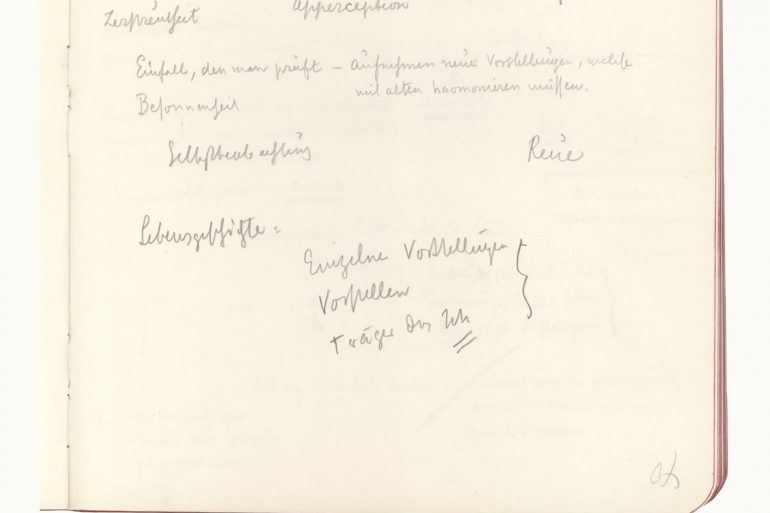 Zerstreutheit Apperception
Einfall, den man prüft – Aufnehmen neuer Vorstellungen, welche
mit alten harmonieren müssen.
Besonnenheit
Selbstbeobachtung Reue
Lebensgeschichte =
Einzelne Vorstellungen
Vorstellen
Träger das Ich